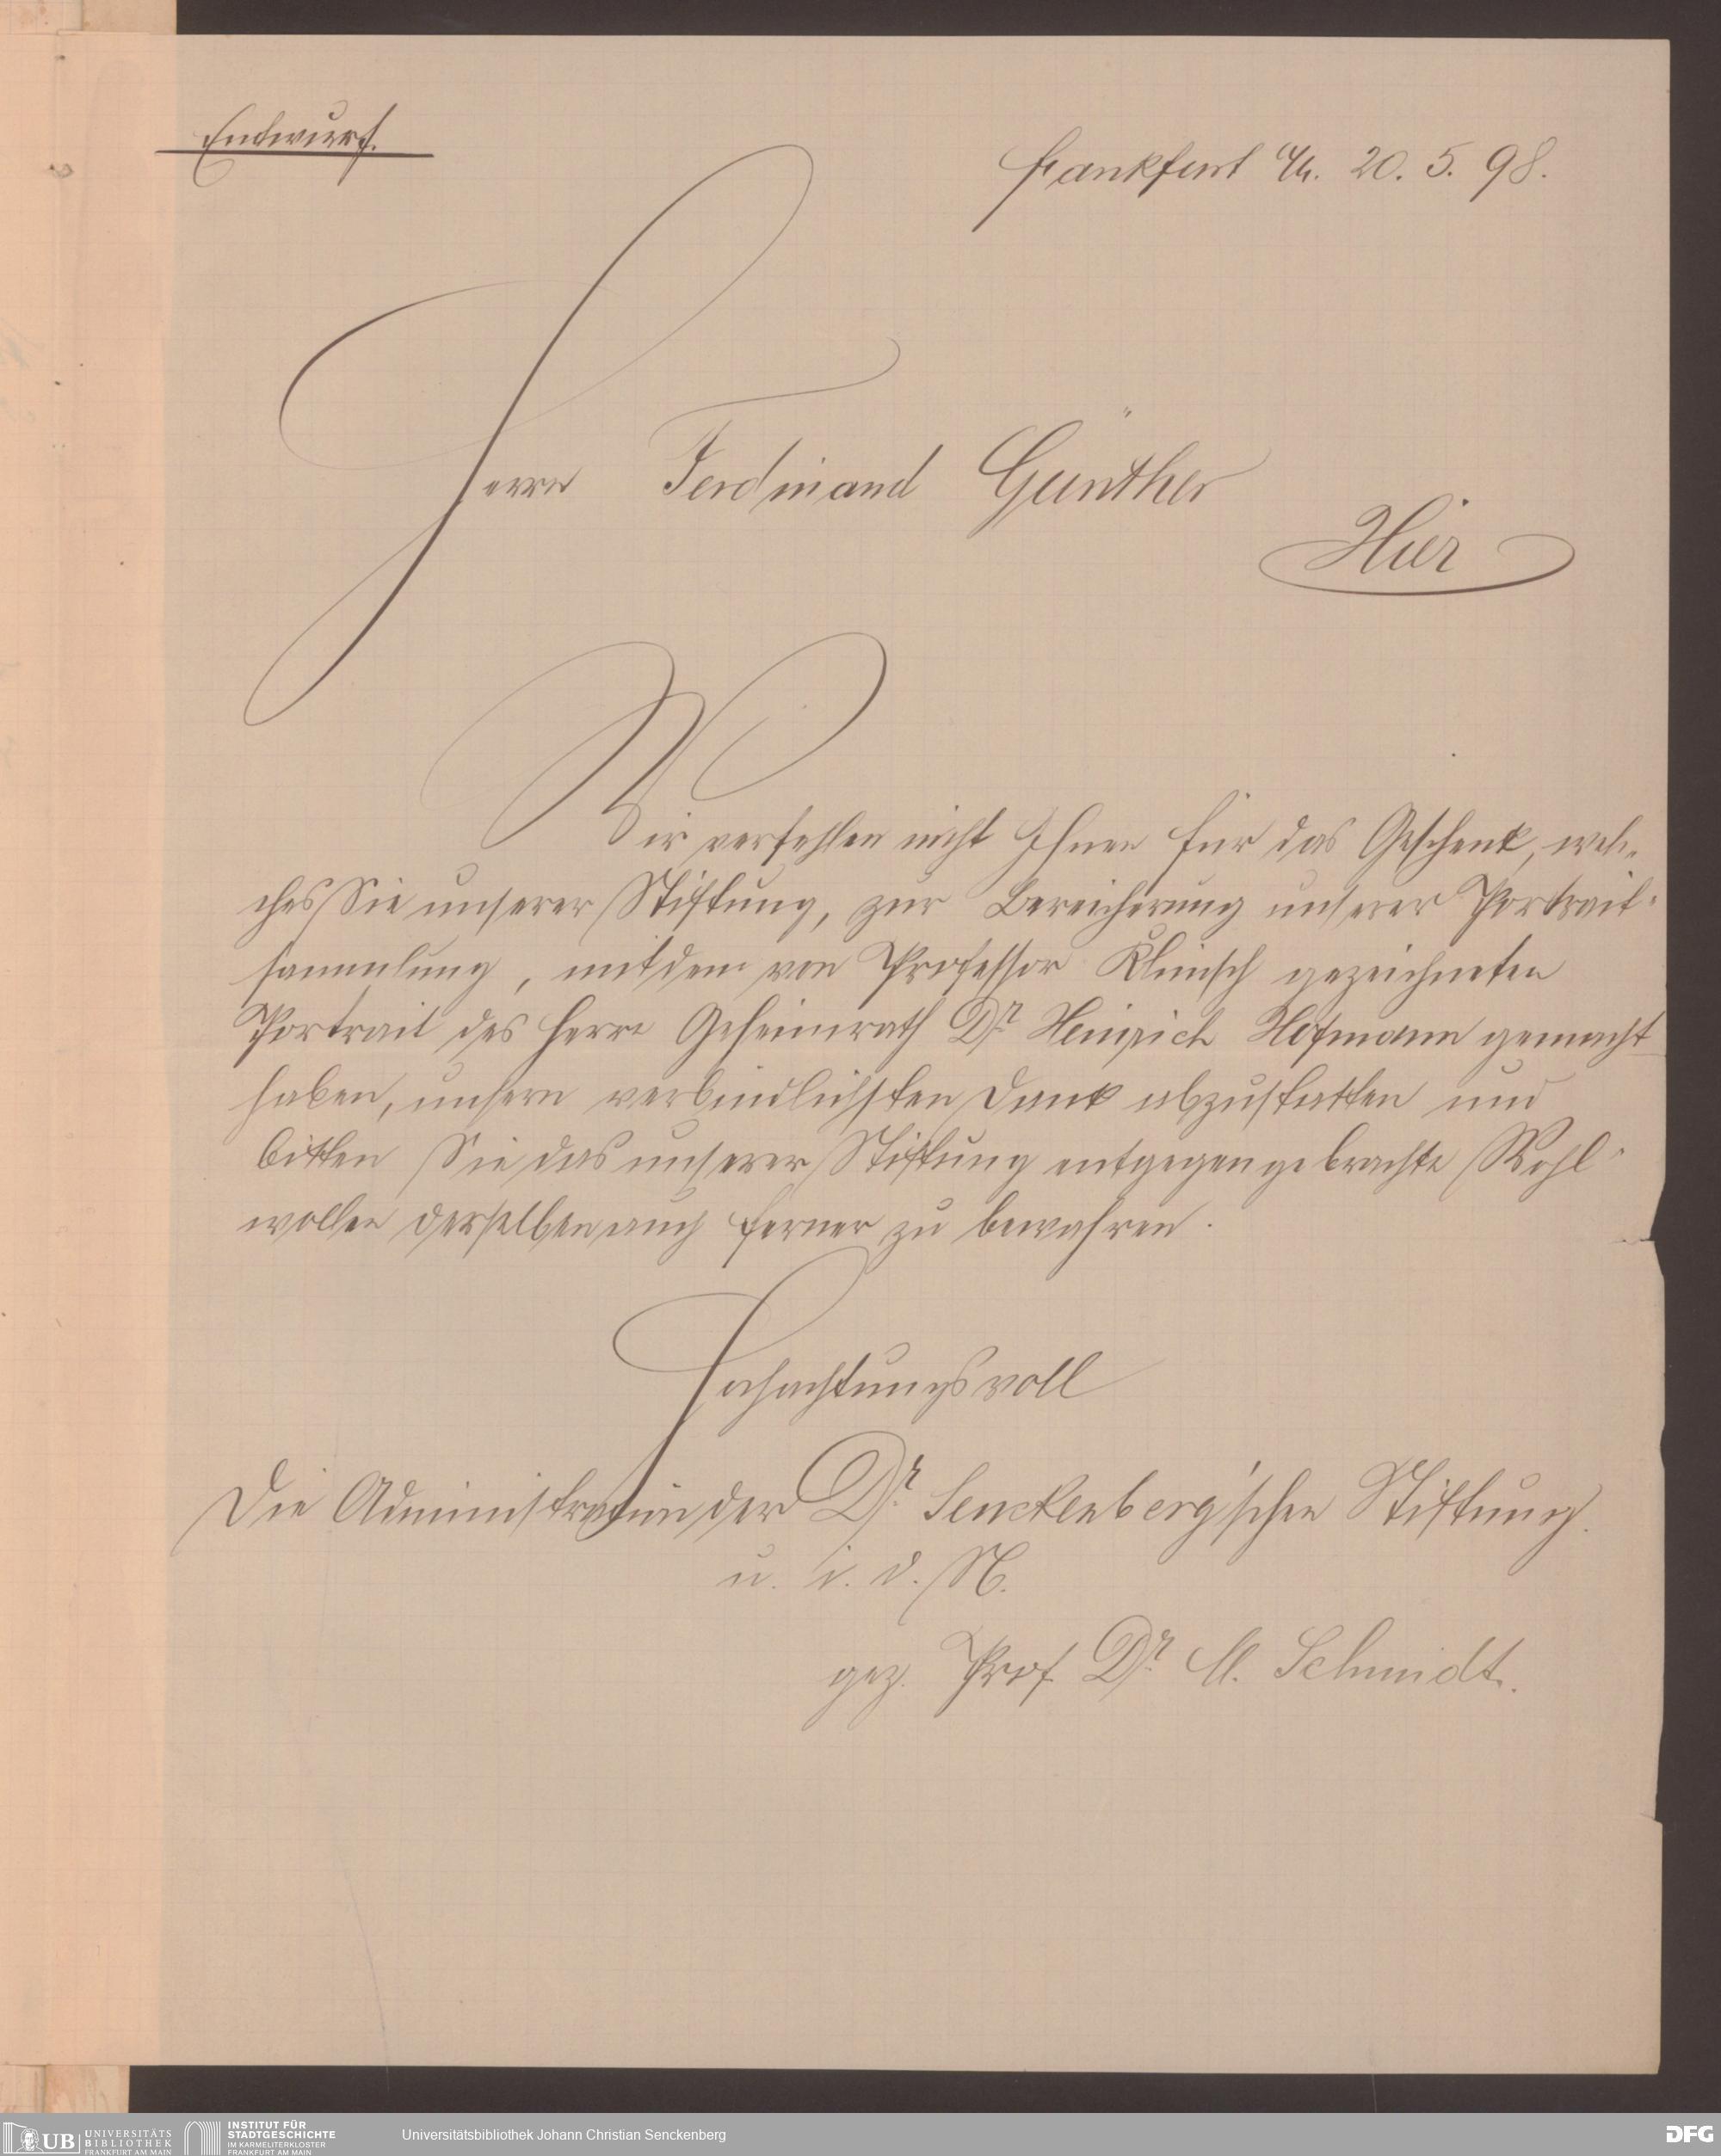 Entwurf.
Frankfurt a/M. 20. 5. 98.
Herrn Ferdinand Günther
Hier
Wir verfehlen nicht Ihnen für das Geschenk, wel-
ches Sie unserer Stiftung, zur Bereicherung unserer Portrait-
sammlung, mit dem von Professor Klimsch gezeichneten
Portrait des Herrn Geheimrath Dr. Heinrich Hofmann gemacht
haben, unsern verbindlichsten Dank abzustatten und
bitten Sie das unserer Stiftung entgegengebrachte Wohl-
wollen derselben auch ferner zu bewahren.
Hochachtungsvoll
Die Administration der Dr. Senckenberg'schen Stiftung.
u. i. d. N.
gez. Prof Dr. M. Schmidt.
UB UNIVERSITÄTS
BIBLIOTHEK
FRANKFURT AM MAIN
INSTITUT FÜR
STADTGESCHICHTE
IM KARMELITERKLOSTER
FRANKFURT AM MAIN
Universitätsbibliothek Johann Christian Senckenberg
DFG